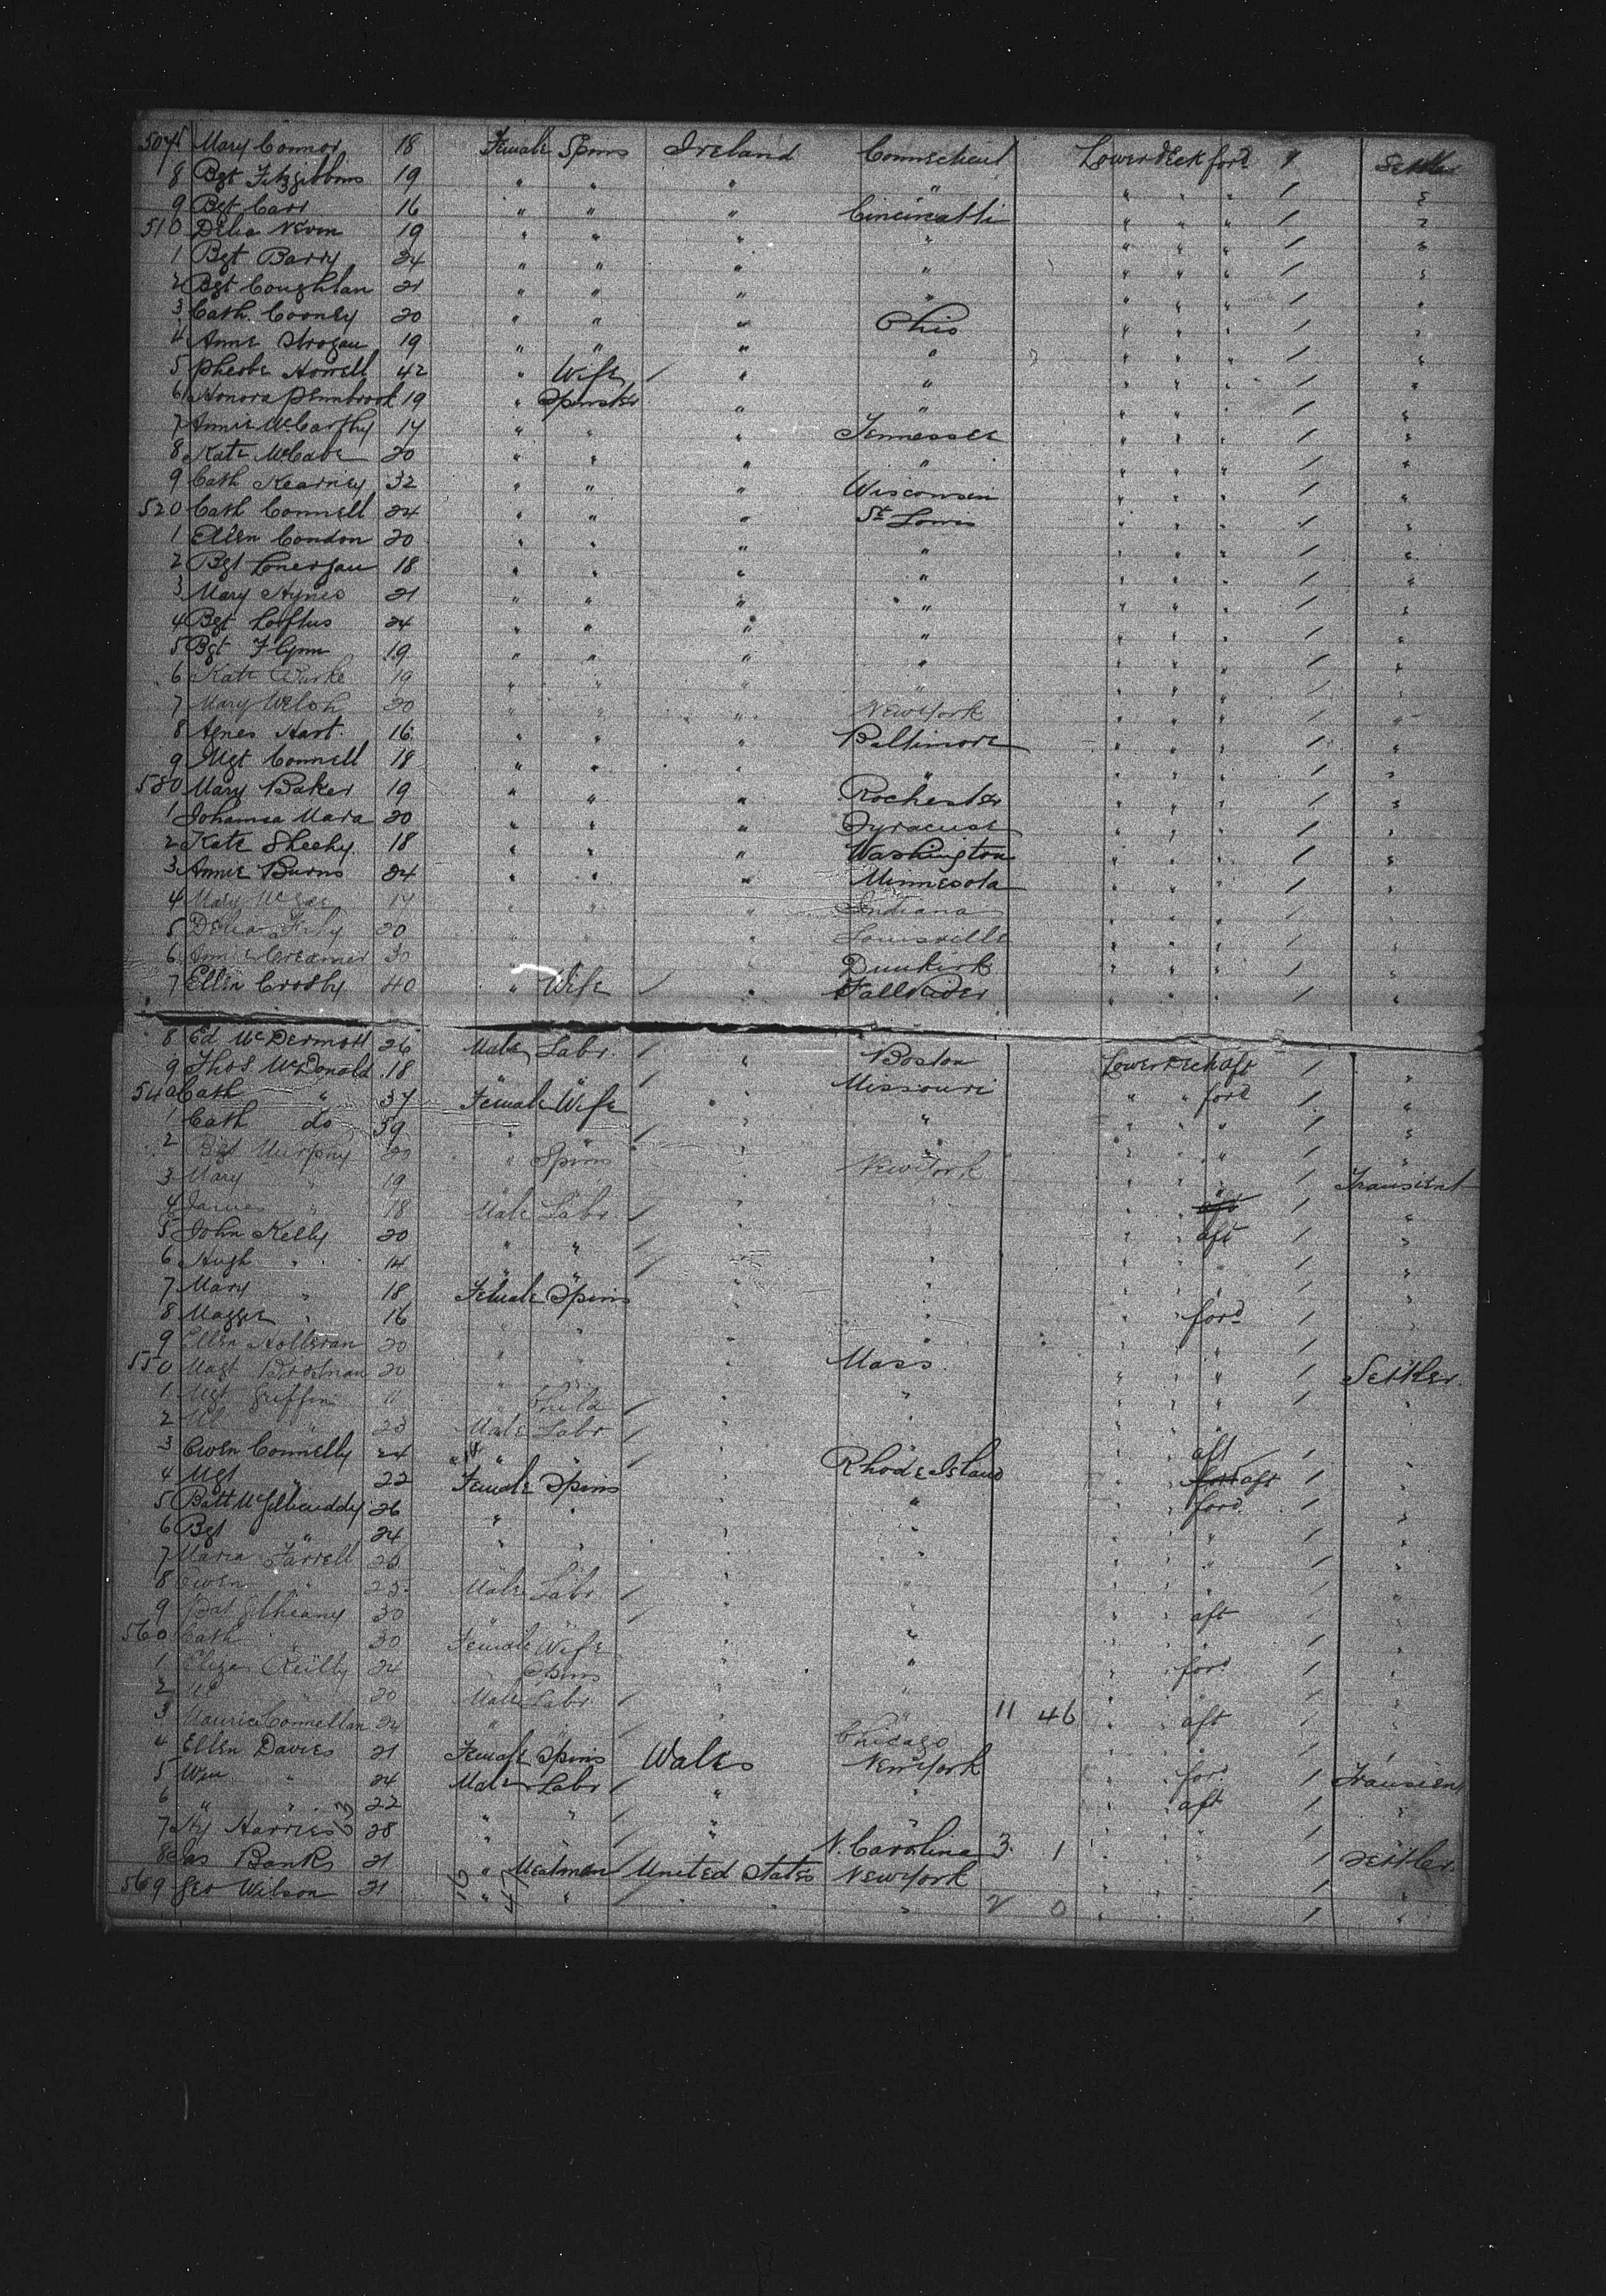 507 Mary Connor 18 Female Spins Ireland Connecticut Lower deck ford 1 Settler
8 Bgt Fitzgibbons 19 " " " " " " " 1 "
9 Bgt Carr 16 " " " Cincinatti " " " 1 "
510 Delia Nevin 19 " " " " " " " 1 "
1 Bgt Barry 24 " " " " " " " 1 "
2 Bgt Coughlan 21 " " " " " " " 1 "
3 Cath. Cooney 20 " " " Ohio " " " 1 "
4 Anne Grogan 19 " " " " " " " 1 "
5 Pheobe Howell 42 " Wife / " " " " " 1 "
6 Honora Pembrook 19 " Spinster " " " " " 1 "
7 Annie McCarthy 17 " " " Tennessee " " " 1 "
8 Kate McCabe 20 " " " " " " " 1 "
9 Cath Kearney 32 " " " Wisconsin " " " 1 "
520 Cath Connell 24 " " " St Louis " " " 1 "
1 Ellen Condon 20 " " " " " " " 1 "
2 Bgt Lonergan 18 " " " " " " " 1 "
3 Mary Hynes 21 " " " " " " " 1 "
4 Bgt Loftus 24 " " " " " " " 1 "
5 Bgt Flynn 19 " " " " " " " 1 "
6 Kate Burke 19 " " " " " " " 1 "
7 Mary Welsh 20 " " " New York " " " 1 "
8 Agnes Hart 16 " " " Baltimore " " " 1 "
9 Mgt Connell 18 " " " " " " " 1 "
530 Mary Baker 19 " " " Rochester " " " 1 "
1 Johanna Mara 20 " " " Syracuse " " " 1 "
2 Kate Sheehy 18 " " " Washington " " " 1 "
3 Annie Burns 24 " " " Minnesota " " " 1 "
4 Mary McGee 17 " " " Indiana " " " 1 "
5 Delia 20 " " " Louisville " " " 1 "
6 Annie Creamer 30 " " " Dunkirk " " " 1 "
7 Ellen Crosby 40 " Wife / " Fallriver " " " 1 "
8 Ed McDermott 26 Male Labr. / " Boston Lower deck aft 1 "
9 Thos. McDonald 18 " " / " Missouri " " ford 1 "
540 Cath " 37 Female Wife " " " " " 1 "
1 Cath do 39 " " / " " " " " 1 "
2 Bgt Murphy 20 " Spins " New York " " " 1 Transient
3 Mary " 19 " " " " " " " 1 "
4 James " 18 Male Labr. / " " " " aft 1 "
5 John Kelly 20 " " / " " " " " 1 "
6 Hugh " 14 " " / " " " " " 1 "
7 Mary " 18 Female Spins " " " " ford 1 "
8 Maggie " 16 " " " " " " " 1 "
9 Ellen Holleran 20 " " " " " " " 1 "
550 Magt Brosnan 20 " " " Mass. " " " 1 Settler.
1 Mgt Griffin 11 " Child / " " " " " 1 "
2 " 23 Male Labr / " " " " aft 1 "
3 Owen Connelly 24 " " / " Rhode Island " " aft 1 "
4 Mgt " 22 Female Spins " " " " ford 1 "
5 Batt McGillicuddy 26 " " " " " " " 1 "
6 Bgt " 24 " " " " " " " 1 "
7 Maria Farrell 26 " " " " " " " 1 "
8 Owen " 25 Male Labr / " " " " aft 1 "
9 Pat 30 " " / " " " " " 1 "
560 Cath " 30 Female Wife " " " " ford 1 "
1 Eliza Reilly 24 " Spins " " " " " 1 "
2 " 20 Male Labr. / " " " " aft 1 "
3 Maurice Connellan 24 " " / " Chicago 11 46 " " " 1 "
4 Ellen Davies 21 Female Spins Wales New York " " ford 1 Transient
5 Wm " 24 Male Labr / " " " " aft 1 "
6 " " 22 " " / " " " " " 1 "
7 Hy Harries 28 " " / " N. Carolina 3 1 " " " 1 Settler
8 Jas Banks 21 " Meatman / United States New York " " " 1 "
569 Geo Wilson 21 " " / " " 2 0 " " " 1 "